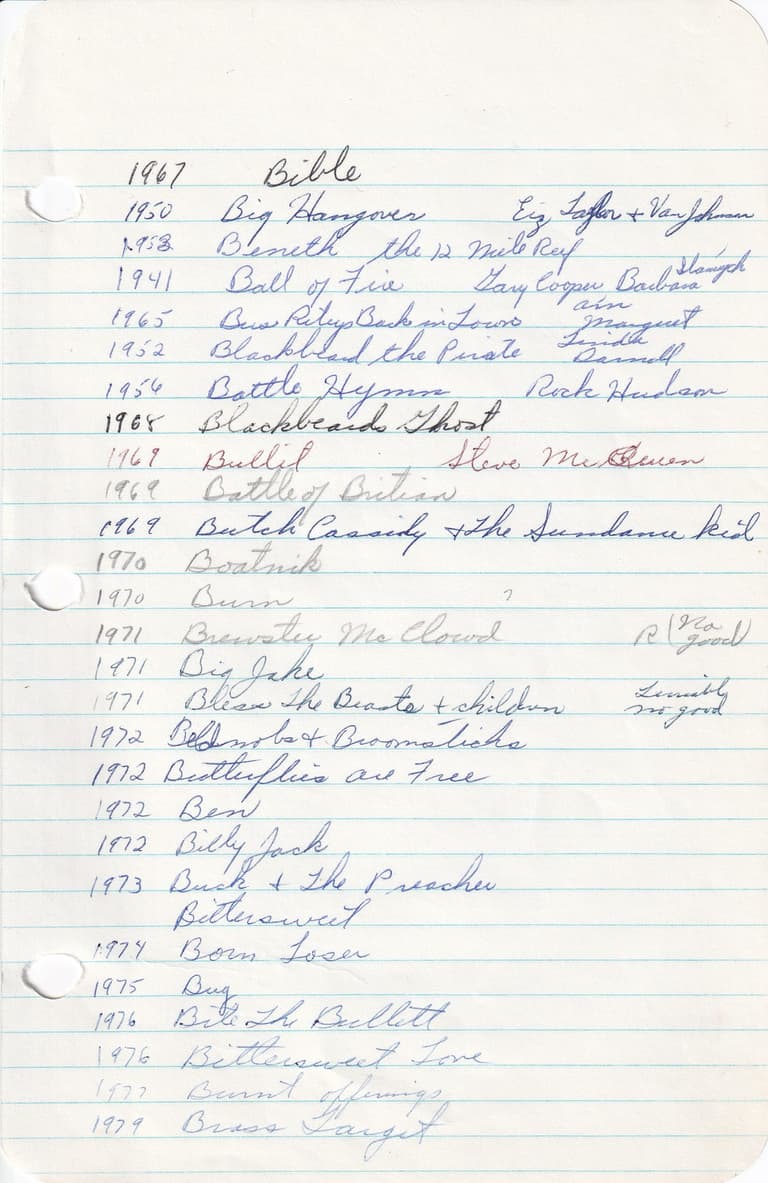 1967 Bible
1950 Big Hangover Liz Taylor + Van Johnson
1953 Beneth the 12 Mile Reef
1941 Ball of Fire Gary Cooper Barbara Stanwyck
1965 Bus Rileys Back in Town Ann Margaret
1952 Blackbeard the Pirate Linda Darnell
1956 Battle Hymn Rock Hudson
1968 Blackbeards Ghost
1969 Bullit Steve McQueen
1969 Battle of Britian
1969 Butch Cassidy + the Sundance kid
1970 Boatnik
1970 Burn ?
1971 Brewster McClowd R (No good)
1971 Big Jake
1971 Bless The Beasts + children Terribly no good
1972 Bednobs + Broomsticks
1972 Butterflies are Free
1972 Ben
1972 Billy Jack
1973 Buck + The Preacher
Bittersweet
1974 Born Loser
1975 Bug
1976 Bite The Bullett
1976 Bittersweet Love
1977 Burnt offerings
1979 Brass Target